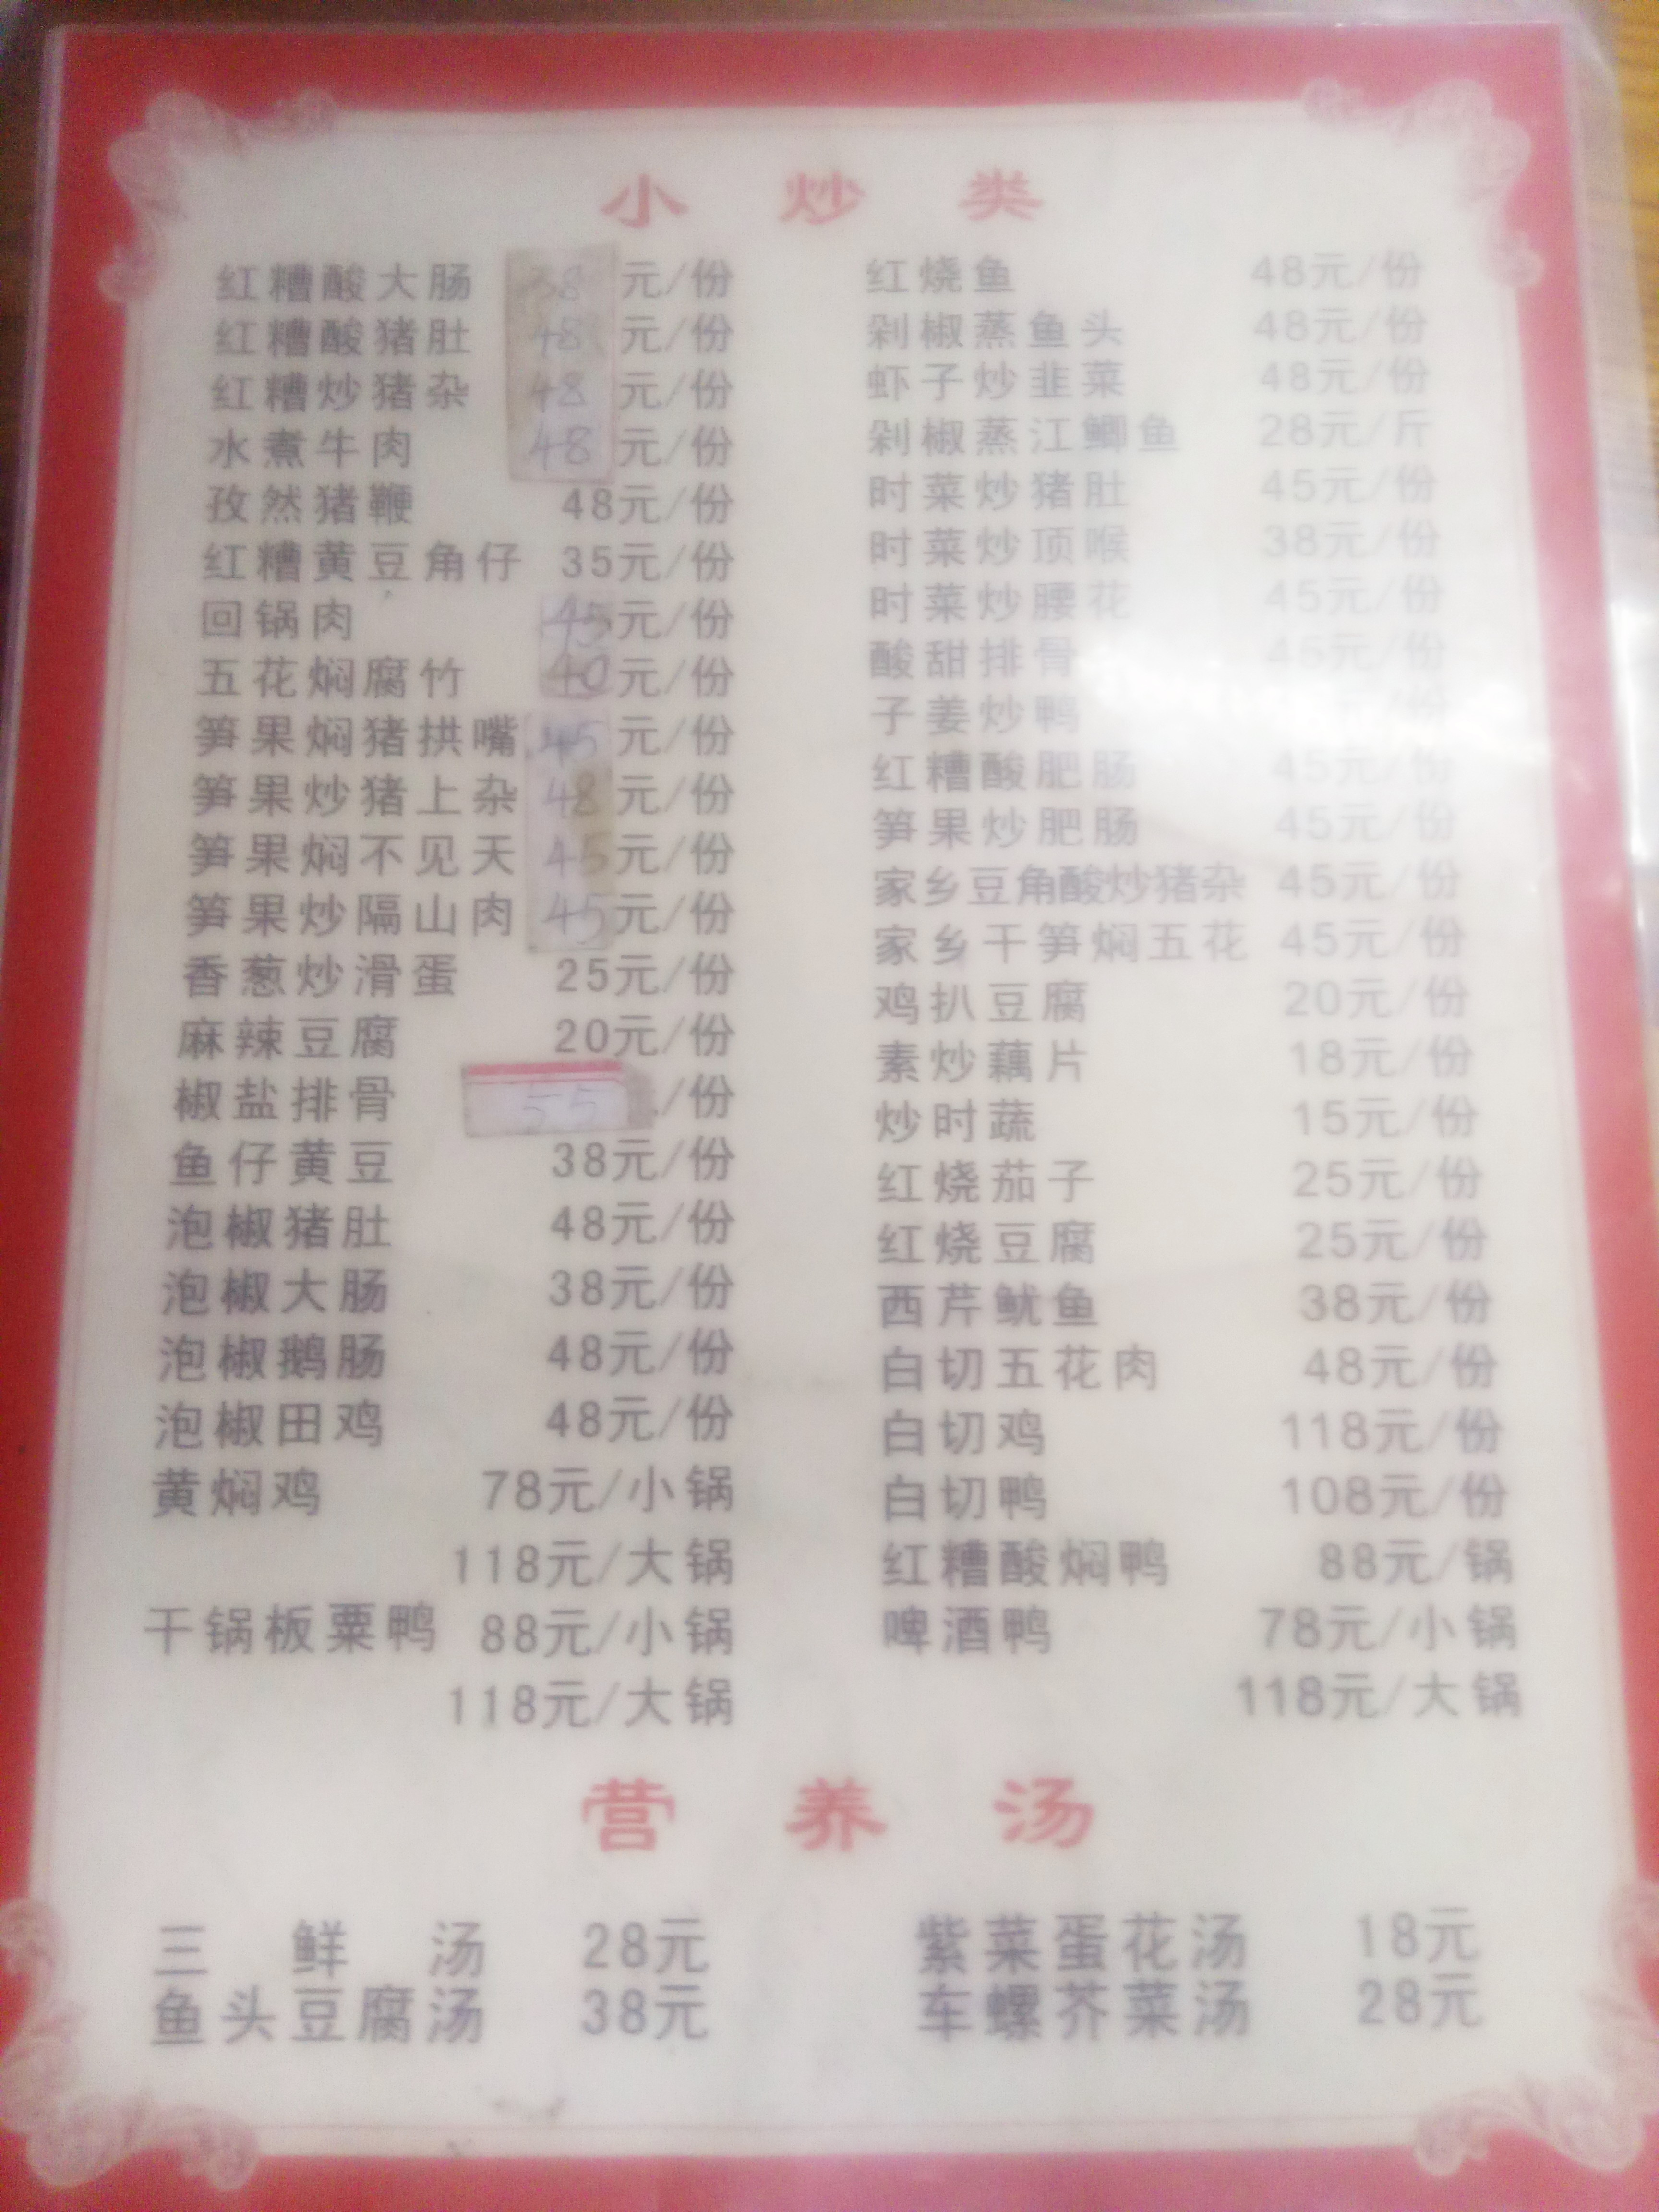 小炒类
红糟酸大肠 38元/份
红糟酸猪肚 48元/份
红糟炒猪杂 48元/份
水煮牛肉 48元/份
孜然猪鞭 48元/份
红糟黄豆角仔 35元/份
回锅肉 45元/份
五花焖腐竹 40元/份
笋果焖猪拱嘴 45元/份
笋果炒猪上杂 48元/份
笋果焖不见天 45元/份
笋果炒隔山肉 45元/份
香葱炒滑蛋 25元/份
麻辣豆腐 20元/份
椒盐排骨 55/份
鱼仔黄豆 38元/份
泡椒猪肚 48元/份
泡椒大肠 38元/份
泡椒鹅肠 48元/份
泡椒田鸡 48元/份
黄焖鸡 78元/小锅
118元/大锅
干锅板粟鸭 88元/小锅
118元/大锅
红烧鱼 48元/份
剁椒蒸鱼头 48元/份
虾子炒韭菜 48元/份
剁椒蒸江鲫鱼 28元/斤
时菜炒猪肚 45元/份
时菜炒顶喉 38元/份
时菜炒腰花 45元/份
酸甜排骨 45元/份
子姜炒鸭 /份
红糟酸肥肠 45元/份
笋果炒肥肠 45元/份
家乡豆角酸炒猪杂 45元/份
家乡干笋焖五花 45元/份
鸡扒豆腐 20元/份
素炒藕片 18元/份
炒时蔬 15元/份
红烧茄子 25元/份
红烧豆腐 25元/份
西芹鱿鱼 38元/份
白切五花肉 48元/份
白切鸡 118元/份
白切鸭 108元/份
红糟酸焖鸭 88元/锅
啤酒鸭 78元/小锅
118元/大锅
营养汤
三鲜汤 28元
鱼头豆腐汤 38元
紫菜蛋花汤 18元
车螺芥菜汤 28元